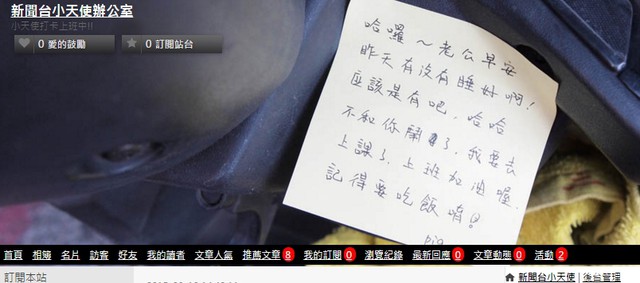 新聞台小天使辦公室
小天使打卡上班中!!
0 愛的鼓勵
0 訂閱站台
哈囉～老公早安
昨天有沒有睡好啊！
應該是有吧，哈哈
不和你鬧了，我要去
上課了，上班加油喔
記得要吃飯唷！
pig
首頁 相簿 名片 訪客 好友 我的讀者 文章人氣 推薦文章 8 我的訂閱 0 瀏覽紀錄 最新回應 0 文章動態 0 活動 2
訂閱本站
新聞台小天使 | 後台管理